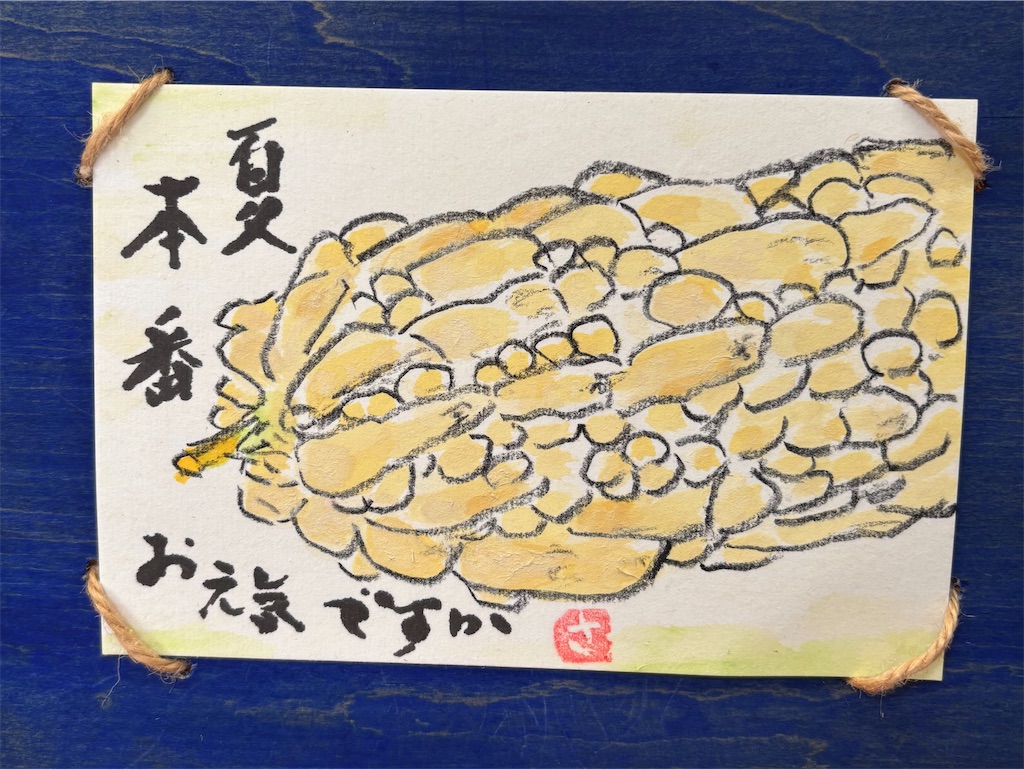 夏
本番
お元気ですか
さ